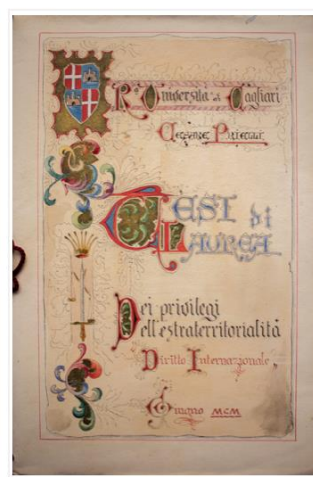 R. Università di Cagliari
Cesare
TESI di
LAUREA
Dei privilegi
dell'estraterritorialità
Diritto Internazionale
Giugno MCM